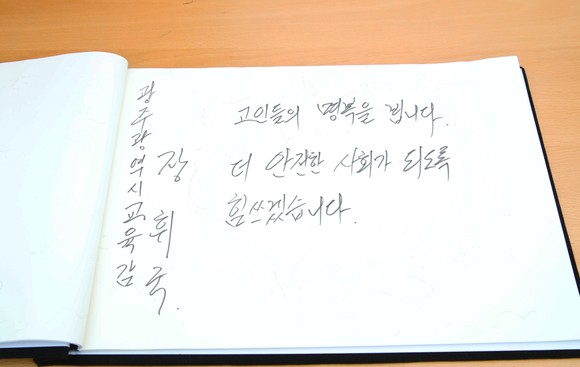 고인들의 명복을 빕니다.
더 안전한 사회가 되도록
힘쓰겠습니다.
광주광역시교육감
장휘국.